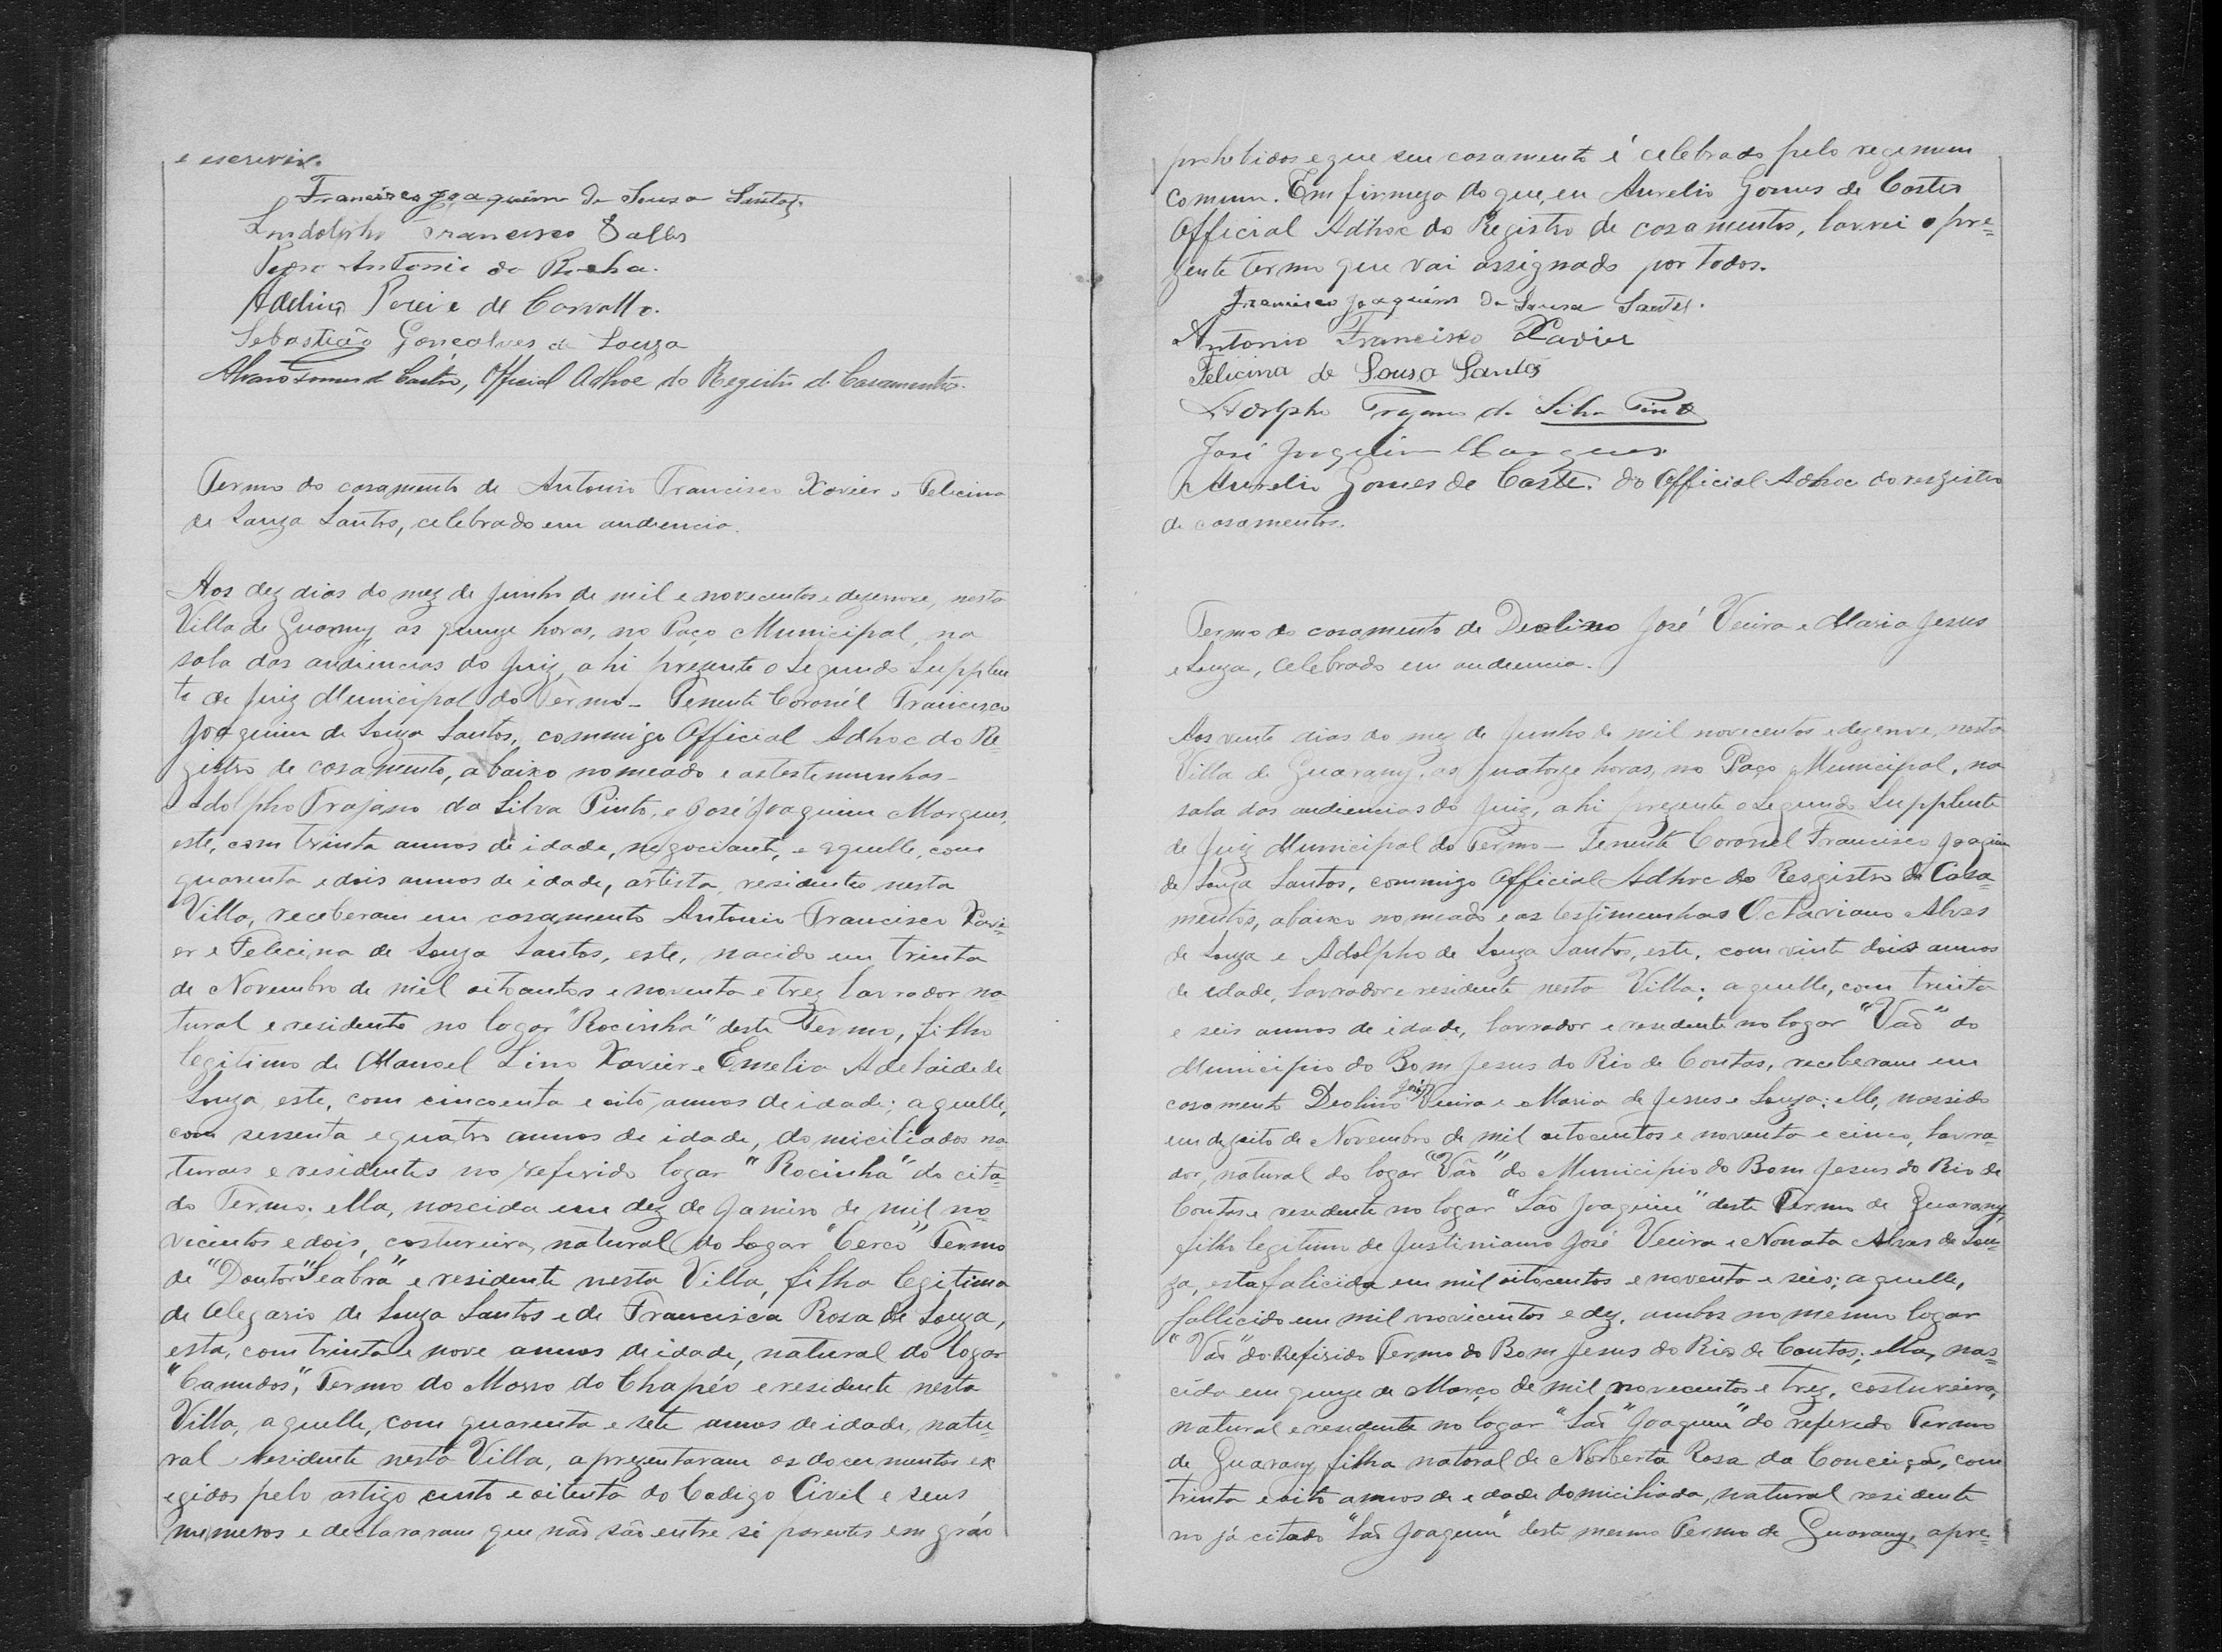 e escrevir.
Francisco Joaquim de Sousa Santos.
Lindolpho Francisco Salles
Pedro Antonio da Rocha.
Adelino Pereira de Carvalho.
Sebastião Gonçalves de Souza
Alvaro Gomes de Castro, Official Adhoc do Registro de Casamentos.
Termo do casamento de Antonio Francisco Xavier e Felicina
de Souza Santos, celebrado em audiencia.
Aos dez dias do mez de Junho de mil e novecentos e dezenove, nesta
Villa de Guarany as quinze horas, no Paço Municipal, na
sala das audiencias do Juiz, ahi prezente o Segundo Supplen
te de Juiz Municipal do Termo - Tenente Coronél Francisco
Joaquim de Souza Santos, commigo Official Adhoc do Re=
gistro de casamento, abaixo nomeado e as testemunhas -
Adolpho Trajano da Silva Pinto, e José Joaquim Marques,
este, com trinta annos de idade, negociante, e aquelle, com
quarenta e dois annos de idade, artista, residentes nesta
Villa, receberam em casamento Antonio Francisco Xavi=
er e Felicina de Souza Santos, este, nacido em trinta
de Novembro de mil oitocentos e noventa e trez lavrador na
tural e residente no logar "Rocinha" deste Termo, filho
legitimo de Manoel Lino Xavier e Emelia Adelaide de
Souza, este, com cincoenta e oito annos de idade; aquelle,
com sessenta e quatro annos de idade, domiciliados na
turaes e residentes no referido logar "Rocinha" do cita=
do Termo; ella, nascida em dez de Janeiro de mil no=
vicentos e dois, costureira, natural do Logar "Cerco" Termo
de "Doutor "Seabra" e residente nesta Villa, filha legitima
de Olegario de Souza Santos e de Francisca Rosa de Souza,
esta, com trinta e nove annos de idade, natural do logar
"Canudos", Termo do Morro do Chapéo e residente nesta
Villa, aquelle, com quarenta e sete annos de idade, natu=
ral residente nesta Villa, aprezentaram os documentos ex
egidos pelo artigo cento e oitenta do Codigo Civel e seus
numeros e declararam que não são entre si parentes em gráo
prohebidos e que seu casamento é celebrado pelo regemem
comum. Em firmeza do que, eu Aurelio Gomes de Castro
Official Adhoc do Registro de casamentos, lavrei o pre=
zente termo que vai assignado por todos.
Francisco Joaquim de Sousa Santos.
Antonio Francisco Xavier
Felicina de Sousa Santos
Adolpho Trajano da Silva Pinto
José Joaquim Marques
Aurelio Gomes de Castro. do Official Adhoc do resgistro
de casamentos.
Termo do casamento de Deolino José Vieira e Maria Jesus
e Souza, celebrado em audiencia.
Aos vente dias do mez de Junho de mil novecentos e dezenove, nesta
Villa de Guarany, as quatorze horas, no Paço Municipal, na
sala das audiencias do Juiz, ahi prezente o Segundo Supplente
de Juiz Municipal do Termo - Tenente Coronel Francisco Joaquim
de Souza Santos, commigo Official Adhoc do Resgistro de Casa=
mentos, abaixo nomeado e as testimunhas Octaviano Alves
de Souza e Adolpho de Souza Santos, este, com vinte dois annos
de idade, lavrador e residente nesta Villa; aquelle, com trinta
e seis annos de idade, lavrador e residente no logar "Vaõ" do
Municipio do Bom Jesus do Rio de Contas, receberam em
casamento Deolino José Vieira e Maria de Jesus e Souza; elle, nassido
em dezoito de Novembro de mil oitocentos e noventa e cinco, lavra=
dor, natural do logar "Vão" do Municipio do Bom Jesus do Rio de
Contas e residente no logar "São Joaquim" deste Termo de Guarany,
filho legitimo de Justiniano José Vieira e Nonata Alves de Sou=
za, esta falicida em mil oitocentos e noventa e seis; aquelle,
fallicido em mil novicentos e dez, ambos no mesmo logar
"Vaõ" do Refirido Termo do Bom Jesus do Rio de Contas; ella, nas=
cida em quinze de Março de mil novecentos e trez, costureira,
natural e residente no logar "Saõ "Joaquim" do referedo Termo
de Guarany filha natoral de Norberta Rosa da Conceição, com
trinta e oito annos de edade domiciliada, natural residente
no já citado "Saõ Joaquim" deste mesmo Termo de Guarany, apre=